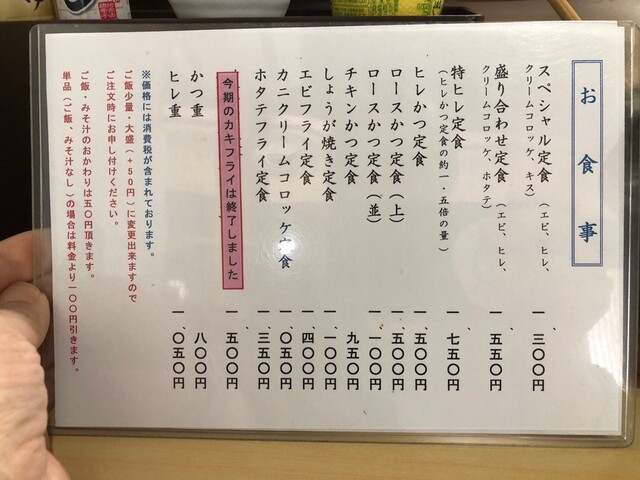 お食事
スペシャル定食（エビ、ヒレ、
クリームコロッケ、キス） 一、三〇〇円
盛り合わせ定食（エビ、ヒレ、
クリームコロッケ、ホタテ） 一、五五〇円
特ヒレ定食 一、七五〇円
（ヒレかつ定食の約一・五倍の量）
ヒレかつ定食 一、五〇〇円
ロースかつ定食（上） 一、五〇〇円
ロースかつ定食（並） 一、一〇〇円
チキンかつ定食 九五〇円
しょうが焼き定食 一、一〇〇円
エビフライ定食 一、四〇〇円
カニクリームコロッケ定食 一、〇五〇円
ホタテフライ定食 一、三五〇円
今期のカキフライは終了しました 一、五〇〇円
かつ重 八〇〇円
ヒレ重 一、〇五〇円
※価格には消費税が含まれております。
ご飯少量・大盛（+50円）に変更出来ますので
ご注文時にお申し付けください。
ご飯・みそ汁のおかわりは五〇円頂きます。
単品（ご飯、みそ汁なし）の場合は料金より一〇〇円引きます。